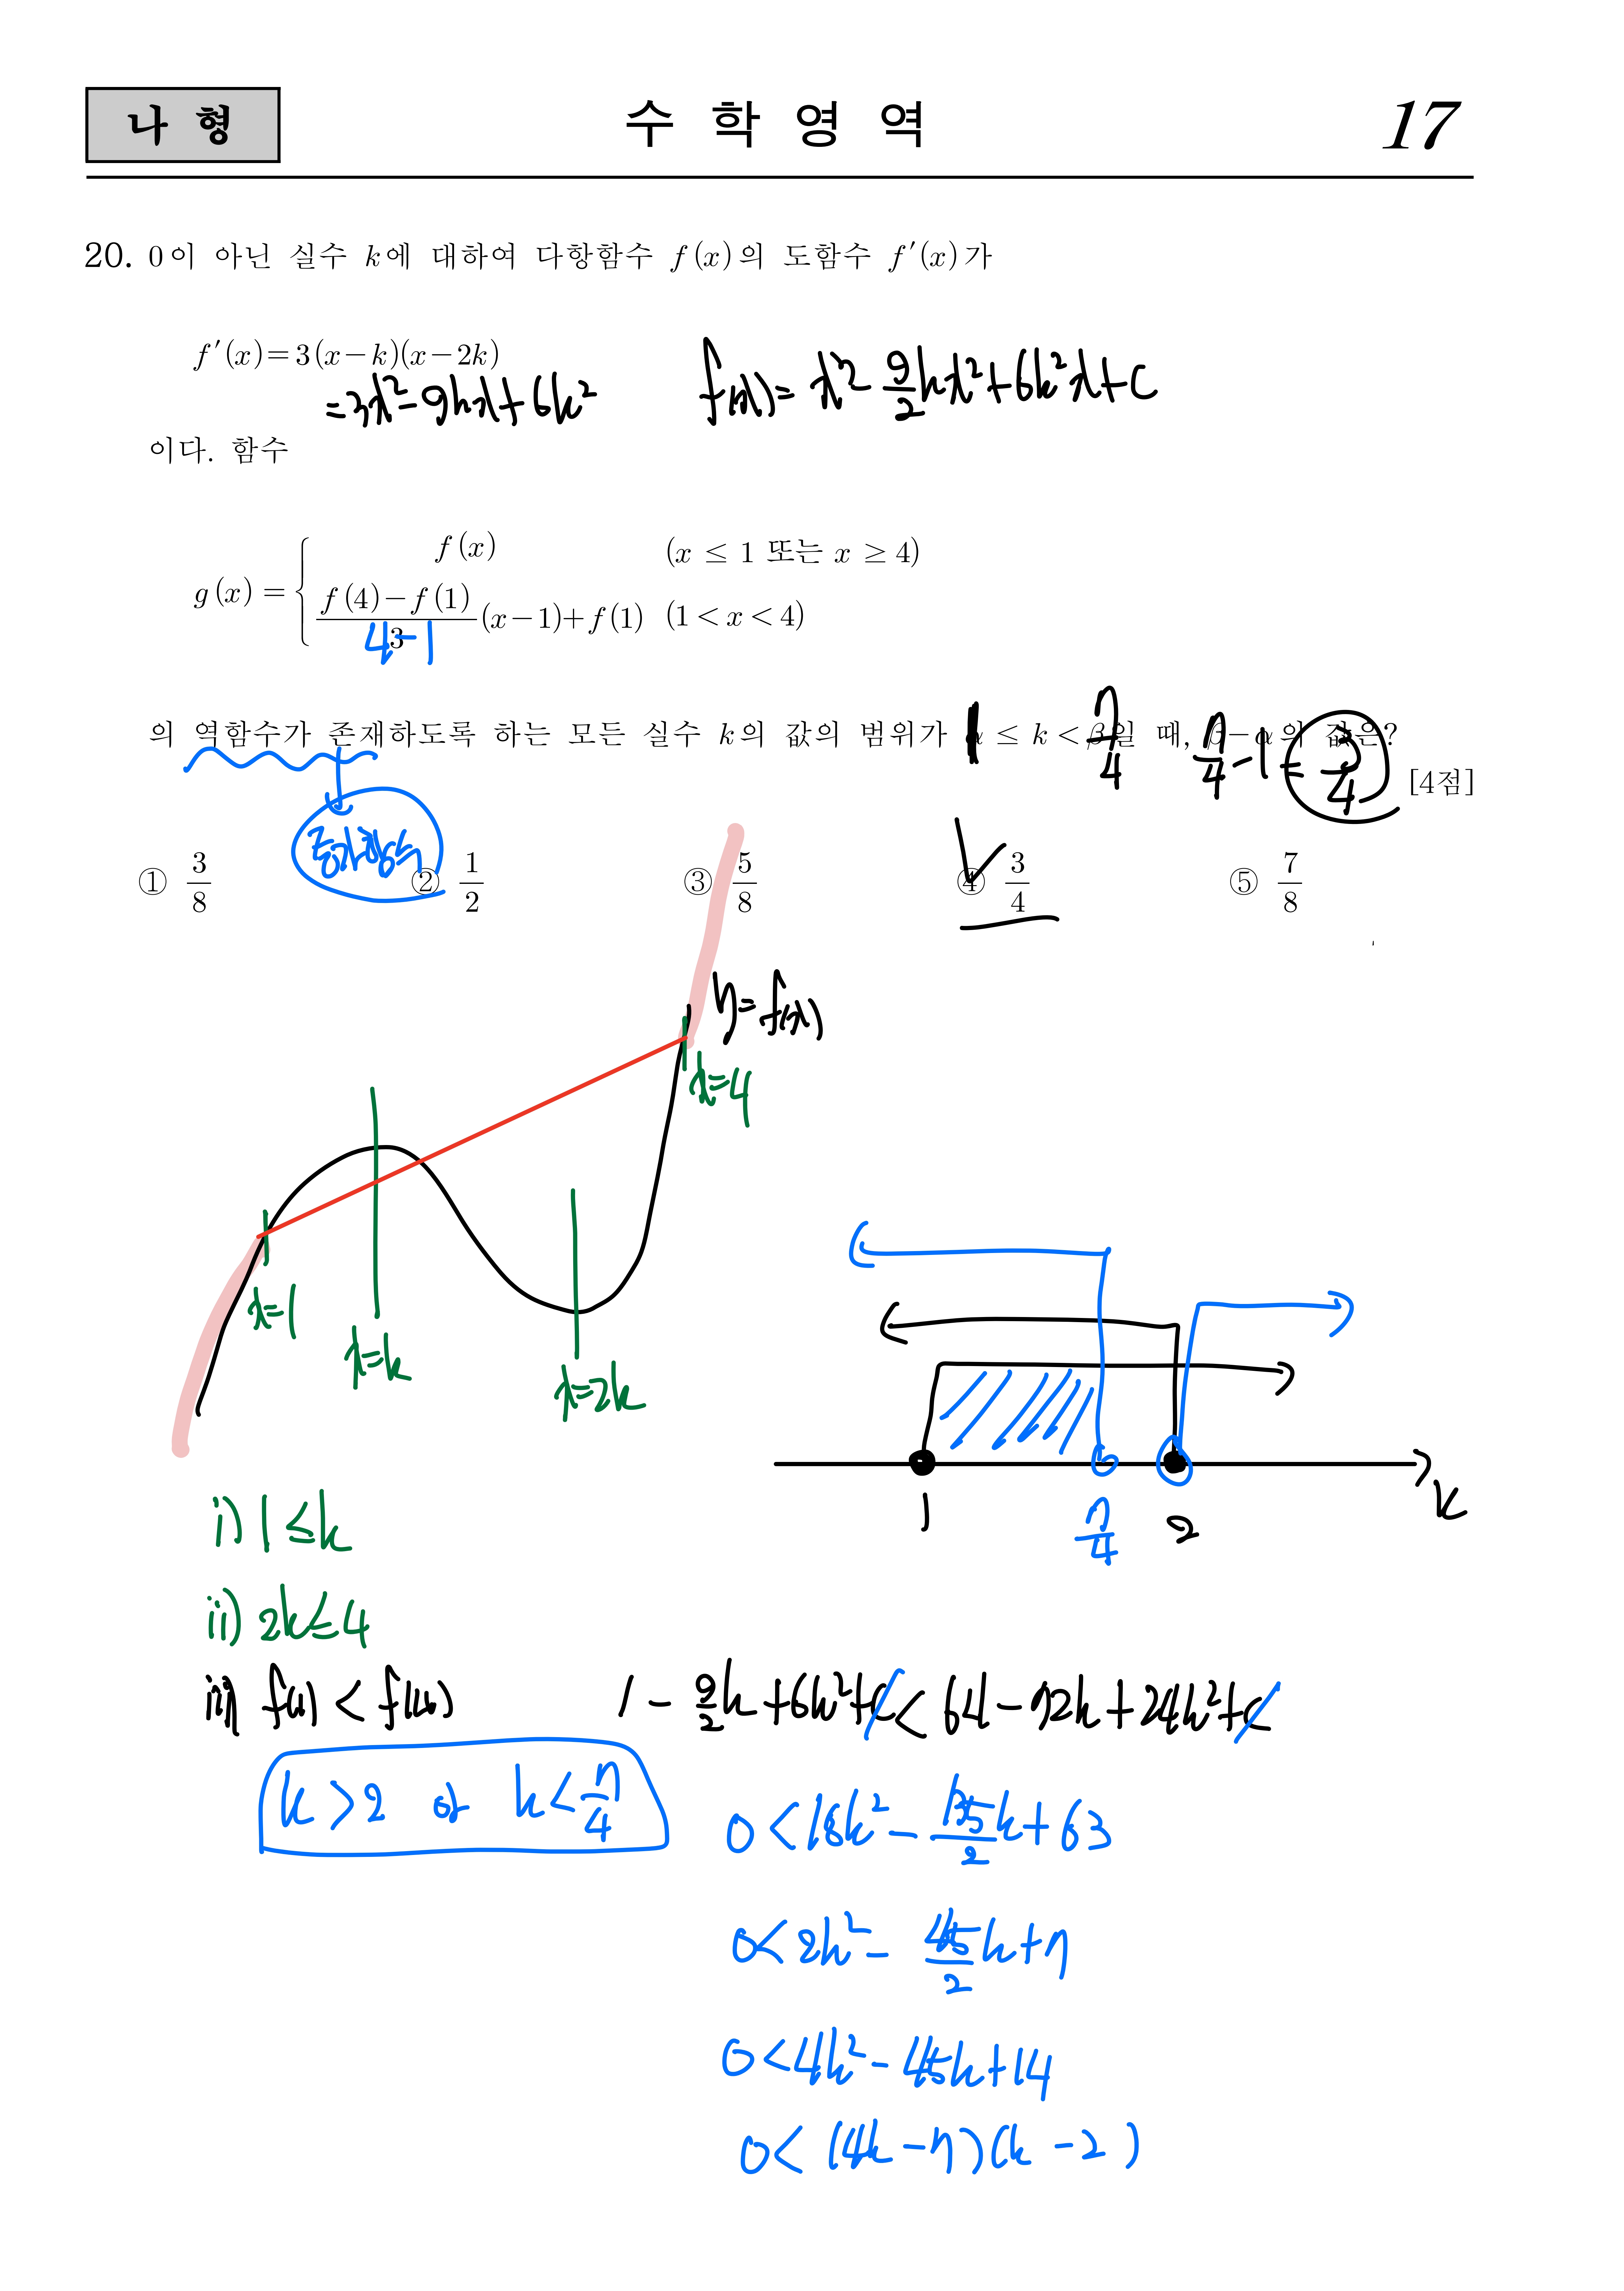 나 형
수 학 영 역
17
20. 0이 아닌 실수 k에 대하여 다항함수 f(x)의 도함수 f'(x)가
f'(x)=3(x-k)(x-2k)
=3x²-9kx+6k²
f(x)= x³-9/2kx²+6k²x+C
이다. 함수
g(x)= { f(x) (x ≤ 1 또는 x ≥ 4)
(f(4)-f(1))/3 (x-1)+f(1) (1<x<4)
4-1
의 역함수가 존재하도록 하는 모든 실수 k의 값의 범위가 α ≤ k < β일 때, β-α의 값은?
1
7/4
7/4-1=3/4
[4점]
증가함수
① 3/8 ② 1/2 ③ 5/8 ④ 3/4 ⑤ 7/8
y=f(x)
x=4
x=1
x=k
x=2k
1 7/4 2 k
i) 1≤k
ii) 2k≤4
iii) f(1) < f(4)
1 - 9/2k+6k²+C < 64-72k+24k²+C
k>2 or k<7/4
0<18k²-135/2k+63
0<2k²-45/2k+7
0<4k²-45k+14
0<(4k-7)(k-2)